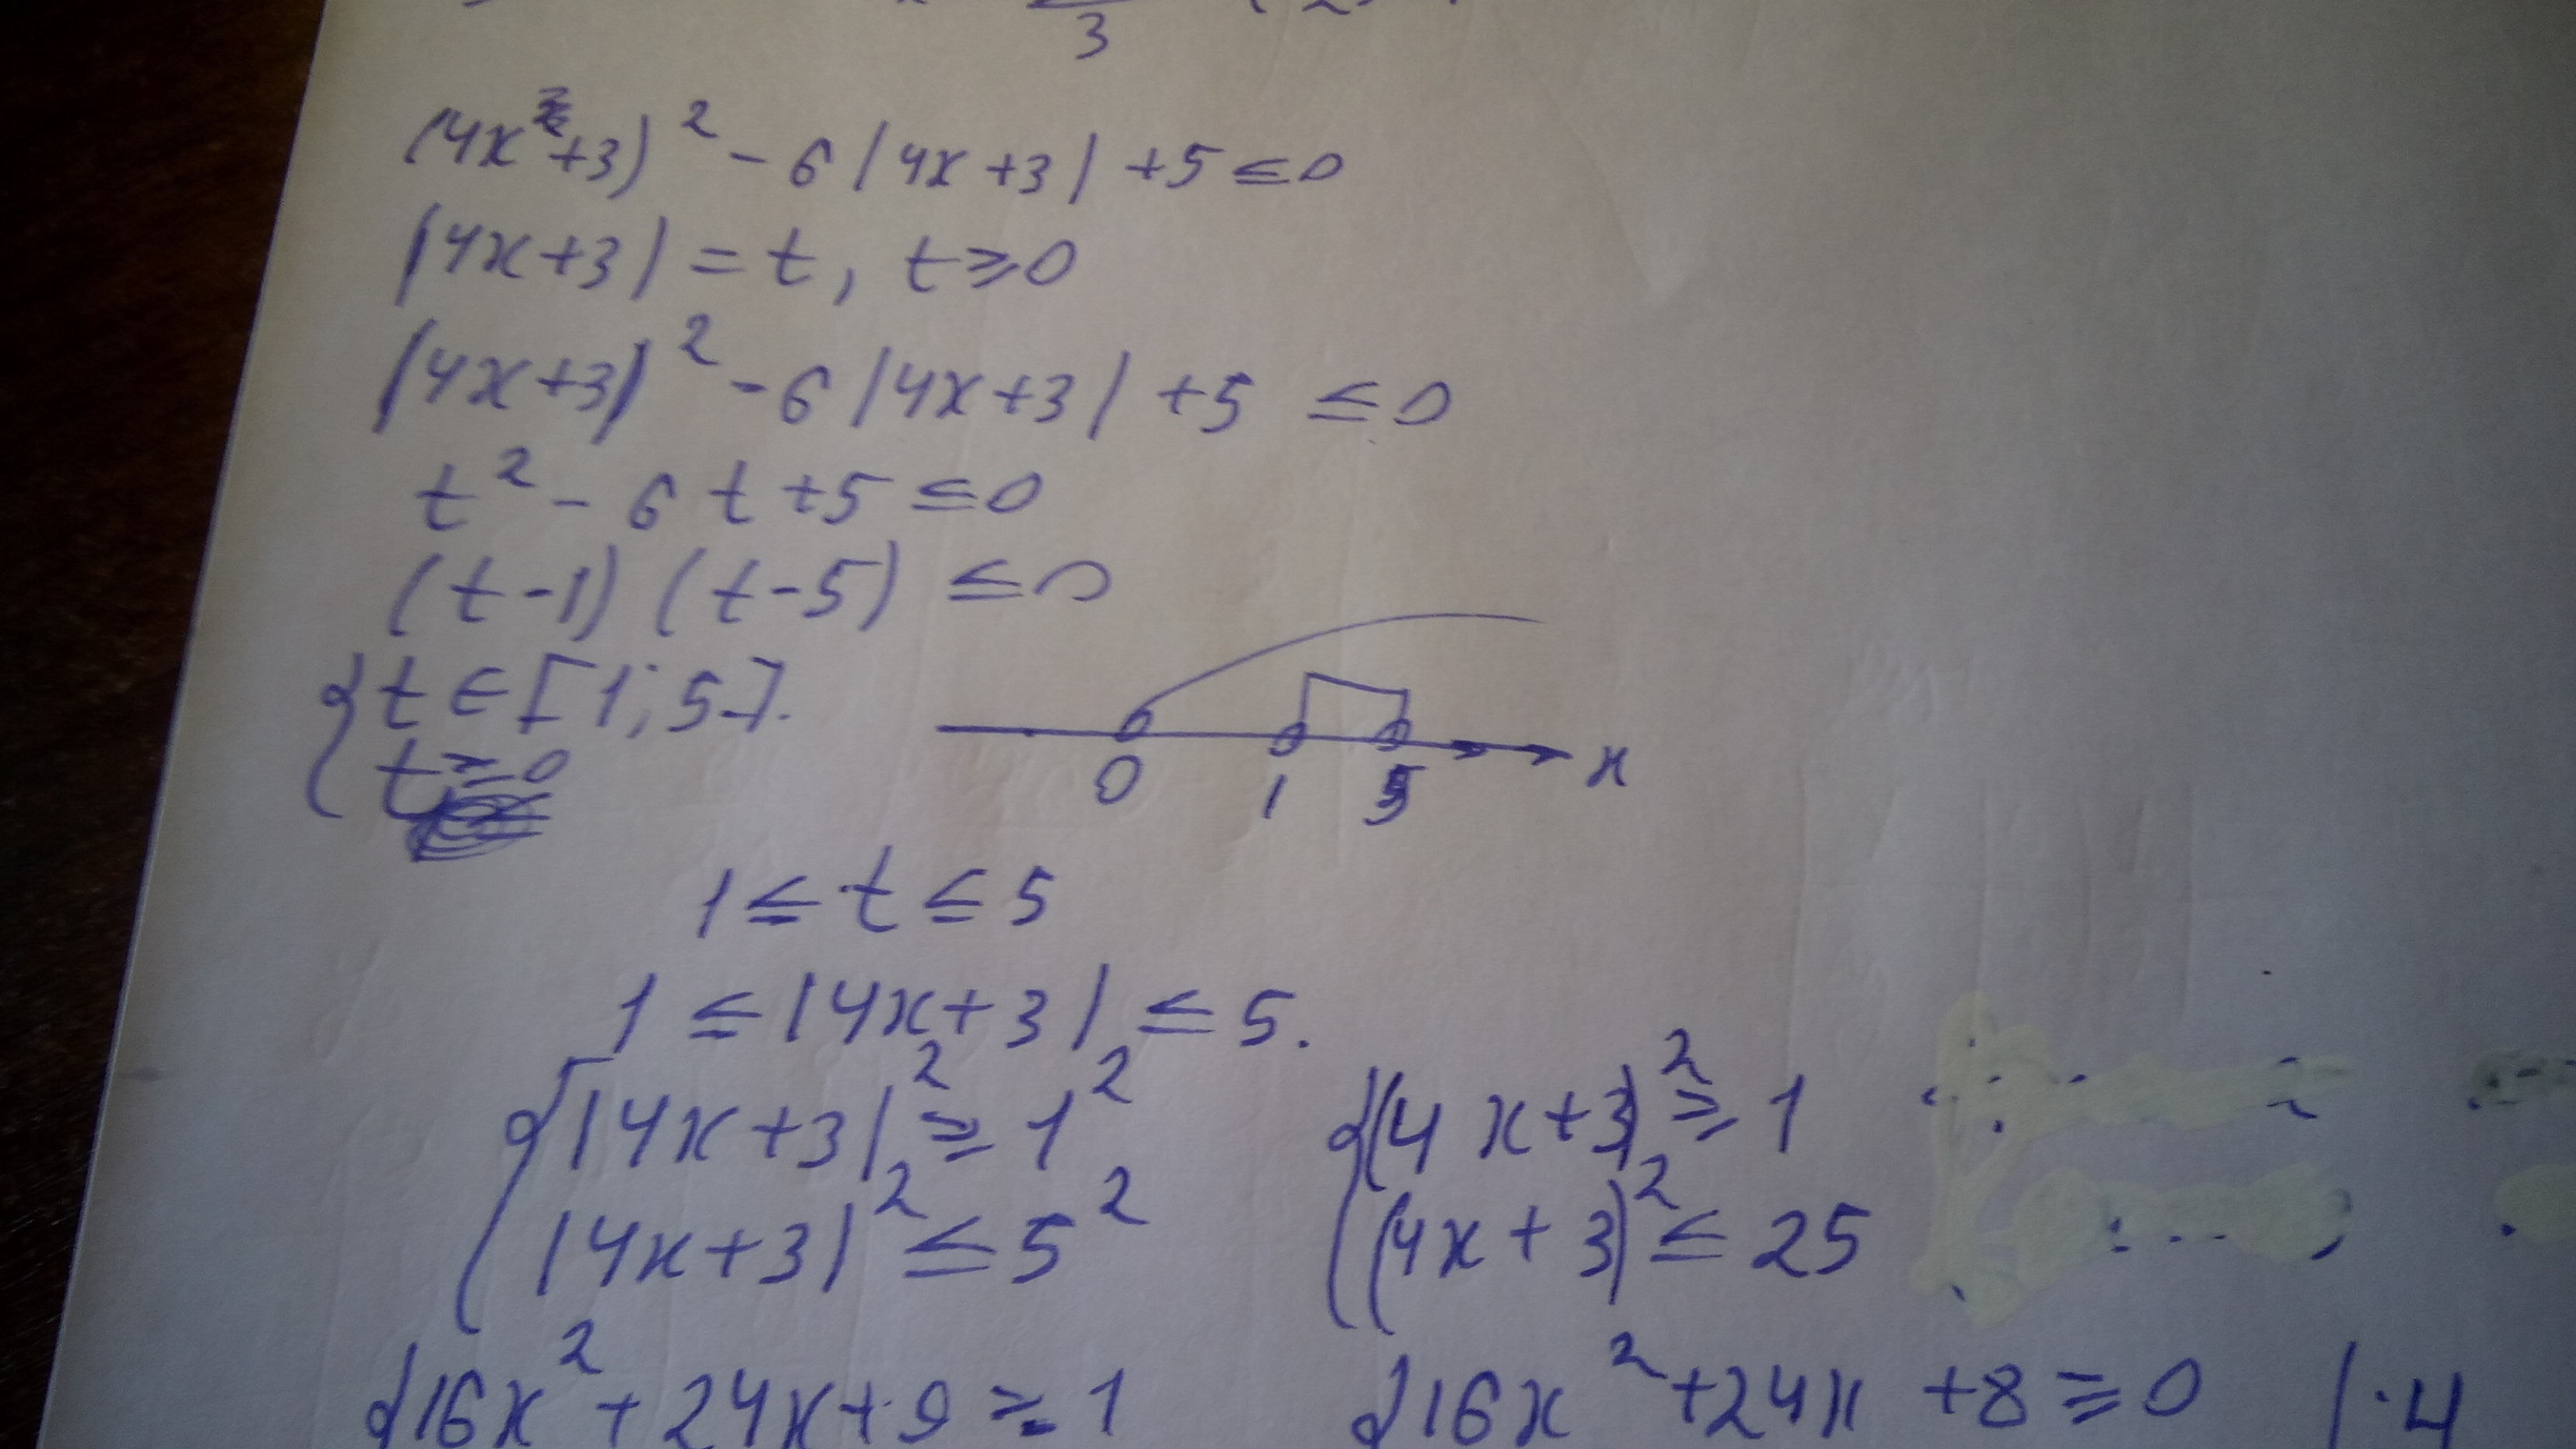 3
(4x+3)² - 6|4x+3| +5 ≤ 0
|4x+3| = t, t ≥ 0
|4x+3|² - 6|4x+3| +5 ≤ 0
t² - 6t +5 ≤ 0
(t-1) (t-5) ≤ 0
{ t ∈ [1; 5].
t ≥ 0
0 1 5 x
1 ≤ t ≤ 5
1 ≤ |4x+3| ≤ 5.
{ |4x+3|² ≥ 1² { (4x+3)² ≥ 1
|4x+3|² ≤ 5² (4x+3)² ≤ 25
{ 16x² + 24x + 9 ≥ 1 { 16x² + 24x + 8 ≥ 0 | · 4